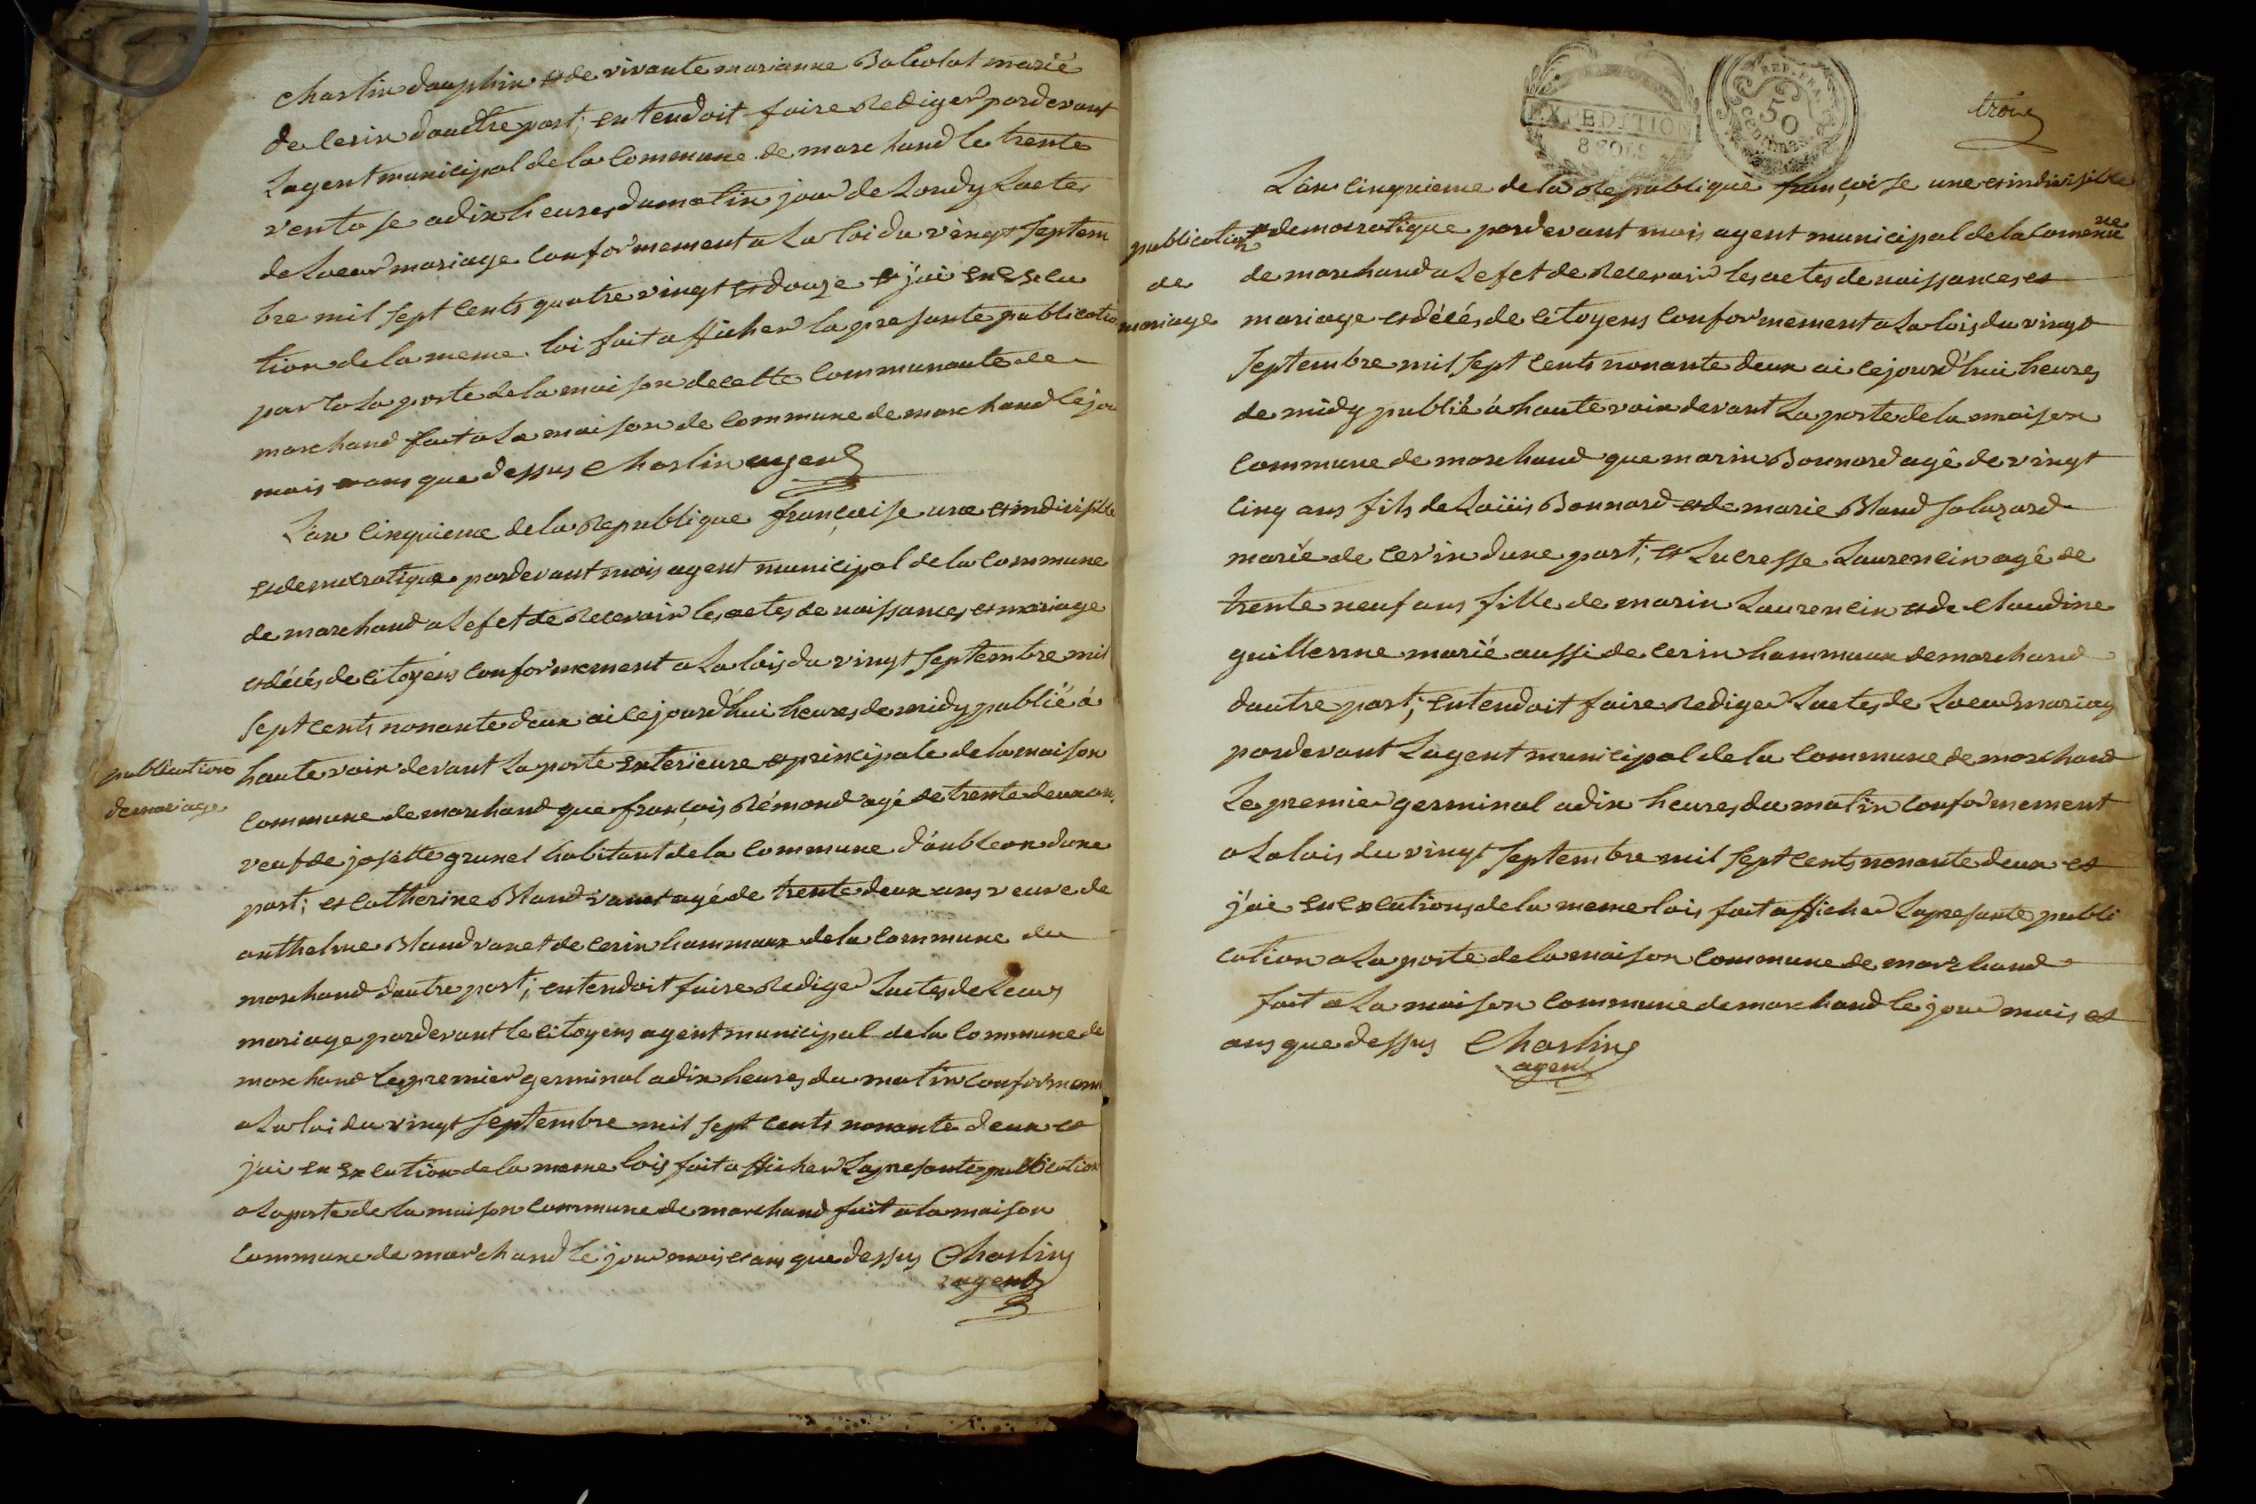 Charlin dauphin et de vivante marianne Baleolat marié
de cerin dauctre part; entendoit faire Rediger pardevant
Lagent municipal de la Commune de marchand le trente
ventose a dix heures du matin jour de Londy Lactes
de Loeur mariage Conformement a La loi du vingt Septem
bre mil Sept Cents quatre vingt et douze et j'ai en Execu
tion de la meme loi fait afficher la presante publicatio
par la porte de la maison de cette Communauté de
marchand fait a La maison de Commune de marchand le jou
mois et ans que dessus Charlin agent
L'an Cinquieme de la Republique françoise une et indivisible
et democratique pardevant mois agent municipal de la Commune
de marchand a Lefet de Recevoir les actes de naissances et mariage
et décés de Citoyens Conformement a La lois du vingt Septembre mil
Sept Cents nonante deux ai Cejourd'hui heures de midy publié á
publication
de mariage
haute voix devant La porte Exterieure et principale de la maison
Commune de marchand que françois Rémond agé de trente deux ans
veuf de josette grunel habitant de la Commune d'áubleon dune
part; et Catherine Bland vanet agé de trente deux ans veuve de
anthelme Bland vanet de Cerin hammaux de la Commune du
marchand dautre part; entendoit faire Rediger Lactes de Leurs
mariage pardevant le Citoyens agent municipal de la Commune de
marchand Le premier germinal a dix heures du matin Conformem
a La loi du vingt Septembre mil Sept Cents nonante deux et
jai en Execution de la meme lois fait afficher La presante publication
a La porte de la maison Commune de marchand fait a la maison
Commune de marchand le jour mois et ans que dessus Charlin
agent
EXPEDITION
8 SOLS
REP. FRA.
50
centimes
trois
L'an Cinquieme de la Republique françoise une et indivisible
publication
de
mariage
et democratique pardevant mois agent municipal de la Comenne
de marchand a Lefet de Recevoir les actes de naissances et
mariage et décés de Citoyens Conformement a La lois du vingt
Septembre mil Sept Cents nonante deux ai Cejourd'hui heures
de midy publié á haute voix devant La porte de la maison
Commune de marchand que marin Bonnard agé de vingt
Cinq ans fils de Loüis Bonnard et de marie Bland Salazard
marié de Cerin dune part; et Lucresse Laurencin agé de
trente neuf ans fille de marin Laurencin et de Claudine
guillerme marié aussi de Cerin hammaux de marchand
dautre part; entendoit faire Rediger Lactes de Loeur mariag
pardevant Lagent municipal de la Commune de marchand
Le premier germinal a dix heures du matin Conformement
a La lois du vingt Septembre mil Sept Cents nonante deux et
j'ai en Excutions de la meme lois fait afficher La presante publi
cation a La porte de la maison Commune de marchand
fait a La maison Commune de marchand le jour mois et
ans que dessus Charlin
agent